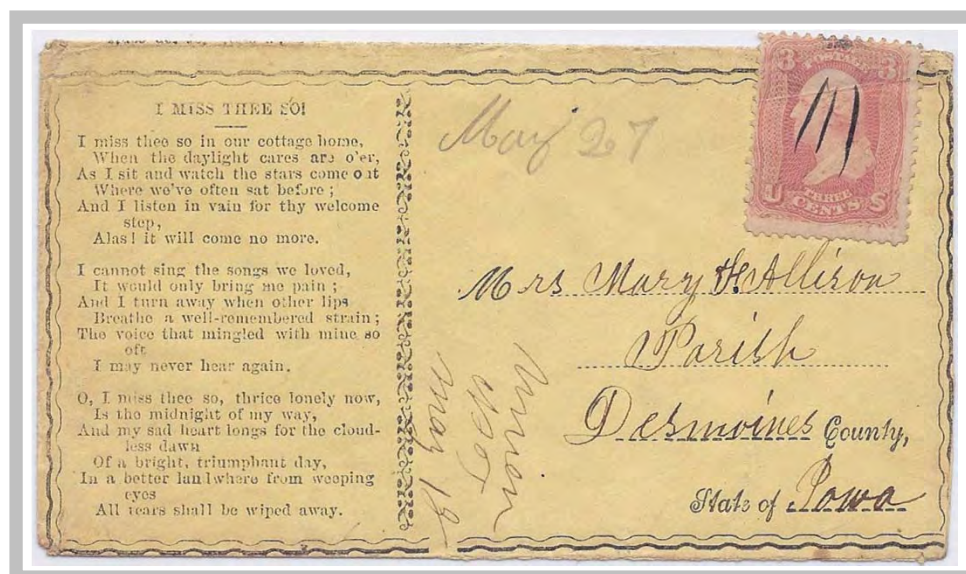 I MISS THEE SO!
I miss thee so in our cottage home,
When the daylight cares are o'er,
As I sit and watch the stars come out
Where we've often sat before;
And I listen in vain for thy welcome
step,
Alas! it will come no more.
I cannot sing the songs we loved,
It would only bring me pain;
And I turn away when other lips
Breathe a well-remembered strain;
The voice that mingled with mine so
oft
I may never hear again.
O, I miss thee so, thrice lonely now,
Is the midnight of my way,
And my sad heart longs for the cloud-
less dawn
Of a bright, triumphant day,
In a better land where from weeping
eyes
All tears shall be wiped away.
May 27
3 POSTAGE 3
U THREE S
CENTS
Mrs Mary H. Allison
Parish
Desmoines County,
State of Iowa
Union
May 19